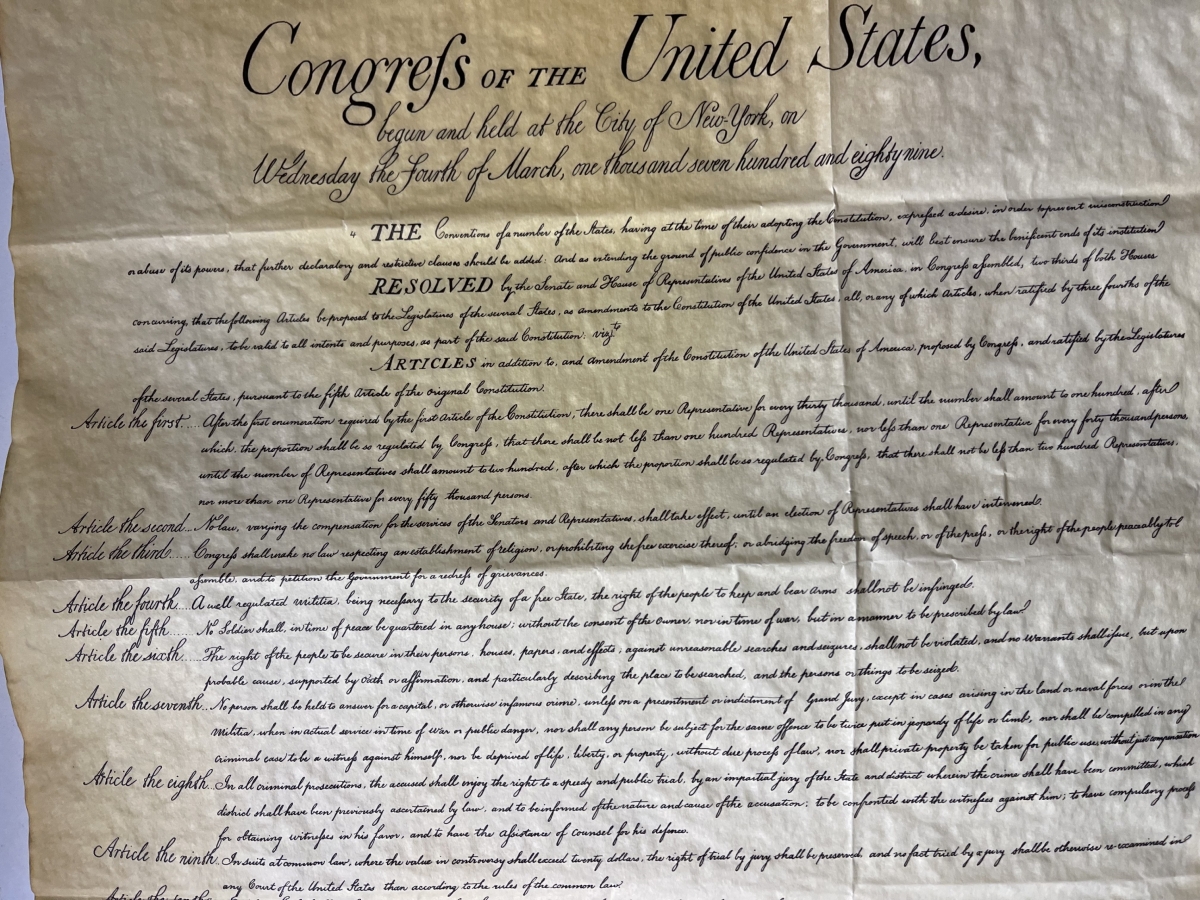 Congreſs OF THE United States,
begun and held at the City of New-York, on
Wednesday the Fourth of March, one thousand seven hundred and eighty nine.
THE Conventions of a number of the States, having at the time of their adopting the Constitution, expreſsed a desire, in order to prevent misconstruction
or abuse of its powers, that further declaratory and restrictive clauses should be added: And as extending the ground of public confidence in the Government, will best ensure the beneficent ends of its institution
RESOLVED by the Senate and House of Representatives of the United States of America, in Congreſs aſsembled, two thirds of both Houses
concurring, that the following Articles be proposed to the Legislatures of the several States, as amendments to the Constitution of the United States, all, or any of which Articles, when ratified by three fourths of the
said Legislatures, to be valid to all intents and purposes, as part of the said Constitution: vizt.
ARTICLES in addition to, and amendment of the Constitution of the United States of America, proposed by Congreſs, and ratified by the Legislatures
of the several States, pursuant to the fifth Article of the original Constitution.
Article the first..... After the first enumeration required by the first Article of the Constitution, there shall be one Representative for every thirty thousand, until the number shall amount to one hundred, after
which, the proportion shall be so regulated by Congreſs, that there shall be not leſs than one hundred Representatives, nor leſs than one Representative for every forty thousand persons,
until the number of Representatives shall amount to two hundred, after which the proportion shall be so regulated by Congreſs, that there shall not be leſs than two hundred Representatives,
nor more than one Representative for every fifty thousand persons.
Article the second... No law, varying the compensation for the services of the Senators and Representatives, shall take effect, until an election of Representatives shall have intervened.
Article the third...... Congreſs shall make no law respecting an establishment of religion, or prohibiting the free exercise thereof; or abridging the freedom of speech, or of the preſs, or the right of the people peaceably to
aſsemble, and to petition the Government for a redreſs of grievances.
Article the fourth.... A well regulated militia, being neceſsary to the security of a free State, the right of the people to keep and bear Arms shall not be infringed.
Article the fifth ..... No Soldier shall, in time of peace be quartered in any house; without the consent of the Owner, nor in time of war, but in a manner to be prescribed by law
Article the sixth..... The right of the people to be secure in their persons, houses, papers, and effects, against unreasonable searches and seizures, shall not be violated, and no warrants shall iſsue, but upon
probable cause, supported by Oath or affirmation, and particularly describing the place to be searched, and the persons or things to be seized.
Article the seventh.. No person shall be held to answer for a capital, or otherwise infamous crime, unleſs on a presentment or indictment of Grand Jury, except in cases arising in the land or naval forces or in the
Militia, when in actual service in time of War or public danger, nor shall any person be subject for the same offence to be twice put in jeopardy of life or limb, nor shall be compelled in any
criminal case to be a witneſs against himself, nor be deprived of life, liberty, or property, without due proceſs of law, nor shall private property be taken for public use, without just compensation
Article the eighth... In all criminal prosecutions, the accused shall enjoy the right to a speedy and public trial, by an impartial jury of the State and district wherein the crime shall have been committed, which
district shall have been previously ascertained by law, and to be informed of the nature and cause of the accusation; to be confronted with the witneſses against him; to have compulsory proceſs
for obtaining witneſses in his favor, and to have the aſsistance of counsel for his defence.
Article the ninth... In suits at common law, where the value in controversy shall exceed twenty dollars, the right of trial by jury shall be preserved, and no fact tried by a jury shall be otherwise re-examined in
any Court of the United States than according to the rules of the common law.